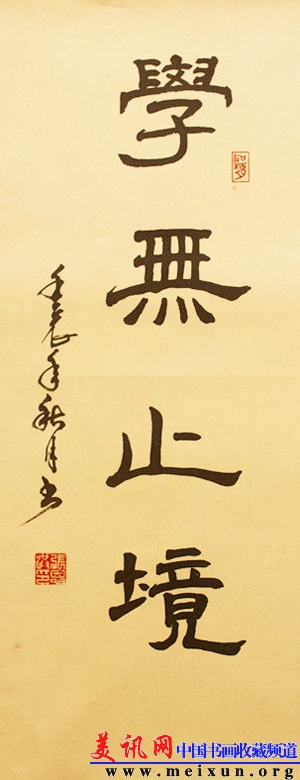 學無止境
壬辰年秋月書
美讯网 中国书画收藏频道
www.meixun.org